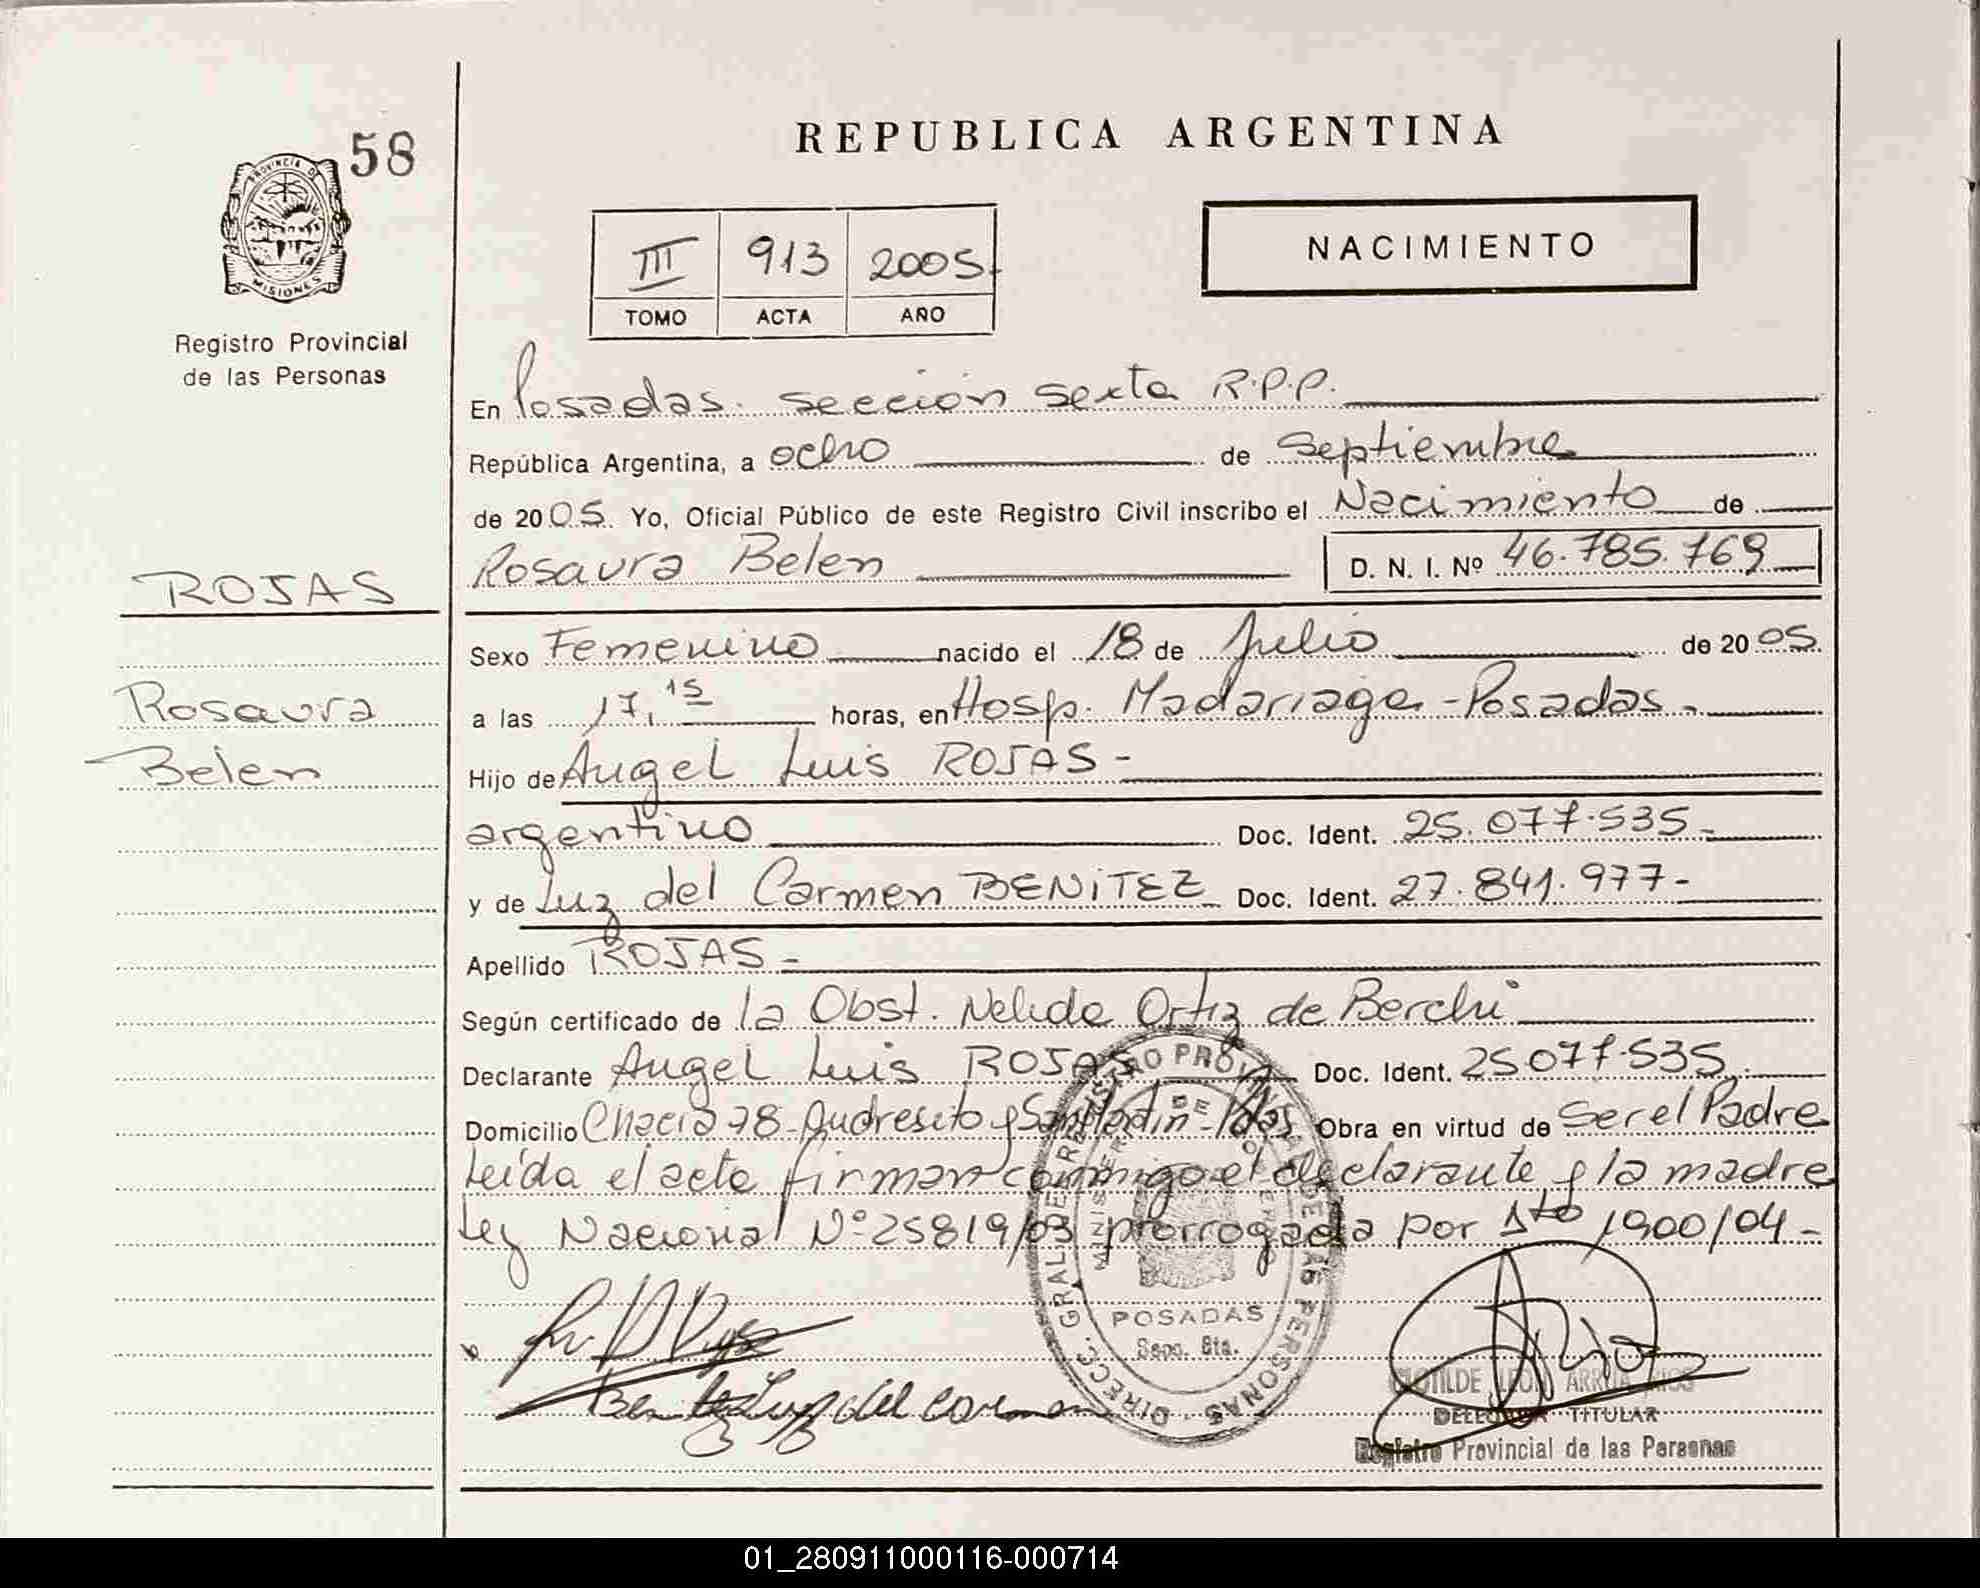 58
PROVINCIA DE
MISIONES
Registro Provincial
de las Personas
ROJAS
Rosaura
Belen
REPUBLICA ARGENTINA
III 913 2005
TOMO ACTA AÑO
NACIMIENTO
En Posadas. sección sexta R.P.P.
República Argentina, a ocho de septiembre
de 2005. Yo, Oficial Público de este Registro Civil inscribo el Nacimiento de
Rosaura Belen D. N. I. Nº 46.785.769
Sexo Femenino nacido el 18 de Julio de 2005.
a las 17,15 horas, en Hosp. Madariaga - Posadas -
Hijo de Angel Luis ROJAS -
argentino Doc. Ident. 25.077.535 -
y de Luz del Carmen BENiTEZ Doc. Ident. 27.841.977 -
Apellido ROJAS -
Según certificado de la Obst. Nelida Ortiz de Berchi
Declarante Angel Luis ROJAS Doc. Ident. 25.077.535.
Domicilio Chacra 78 - Andresito y San Martin - Pdas Obra en virtud de Ser el Padre
Leída el acta firman conmigo el declarante y la madre
Ley Nacional Nº 25819/03 prorrogada por Dto 1900/04 -
DIRECC. GRAL. DE REGISTRO PROVINCIAL DE LAS PERSONAS
POSADAS
Secc. 6ta.
Benitez Luz del carmen
CLOTILDE LEON ARRUA RIOS
DELEGADA TITULAR
Registro Provincial de las Personas
01_280911000116-000714